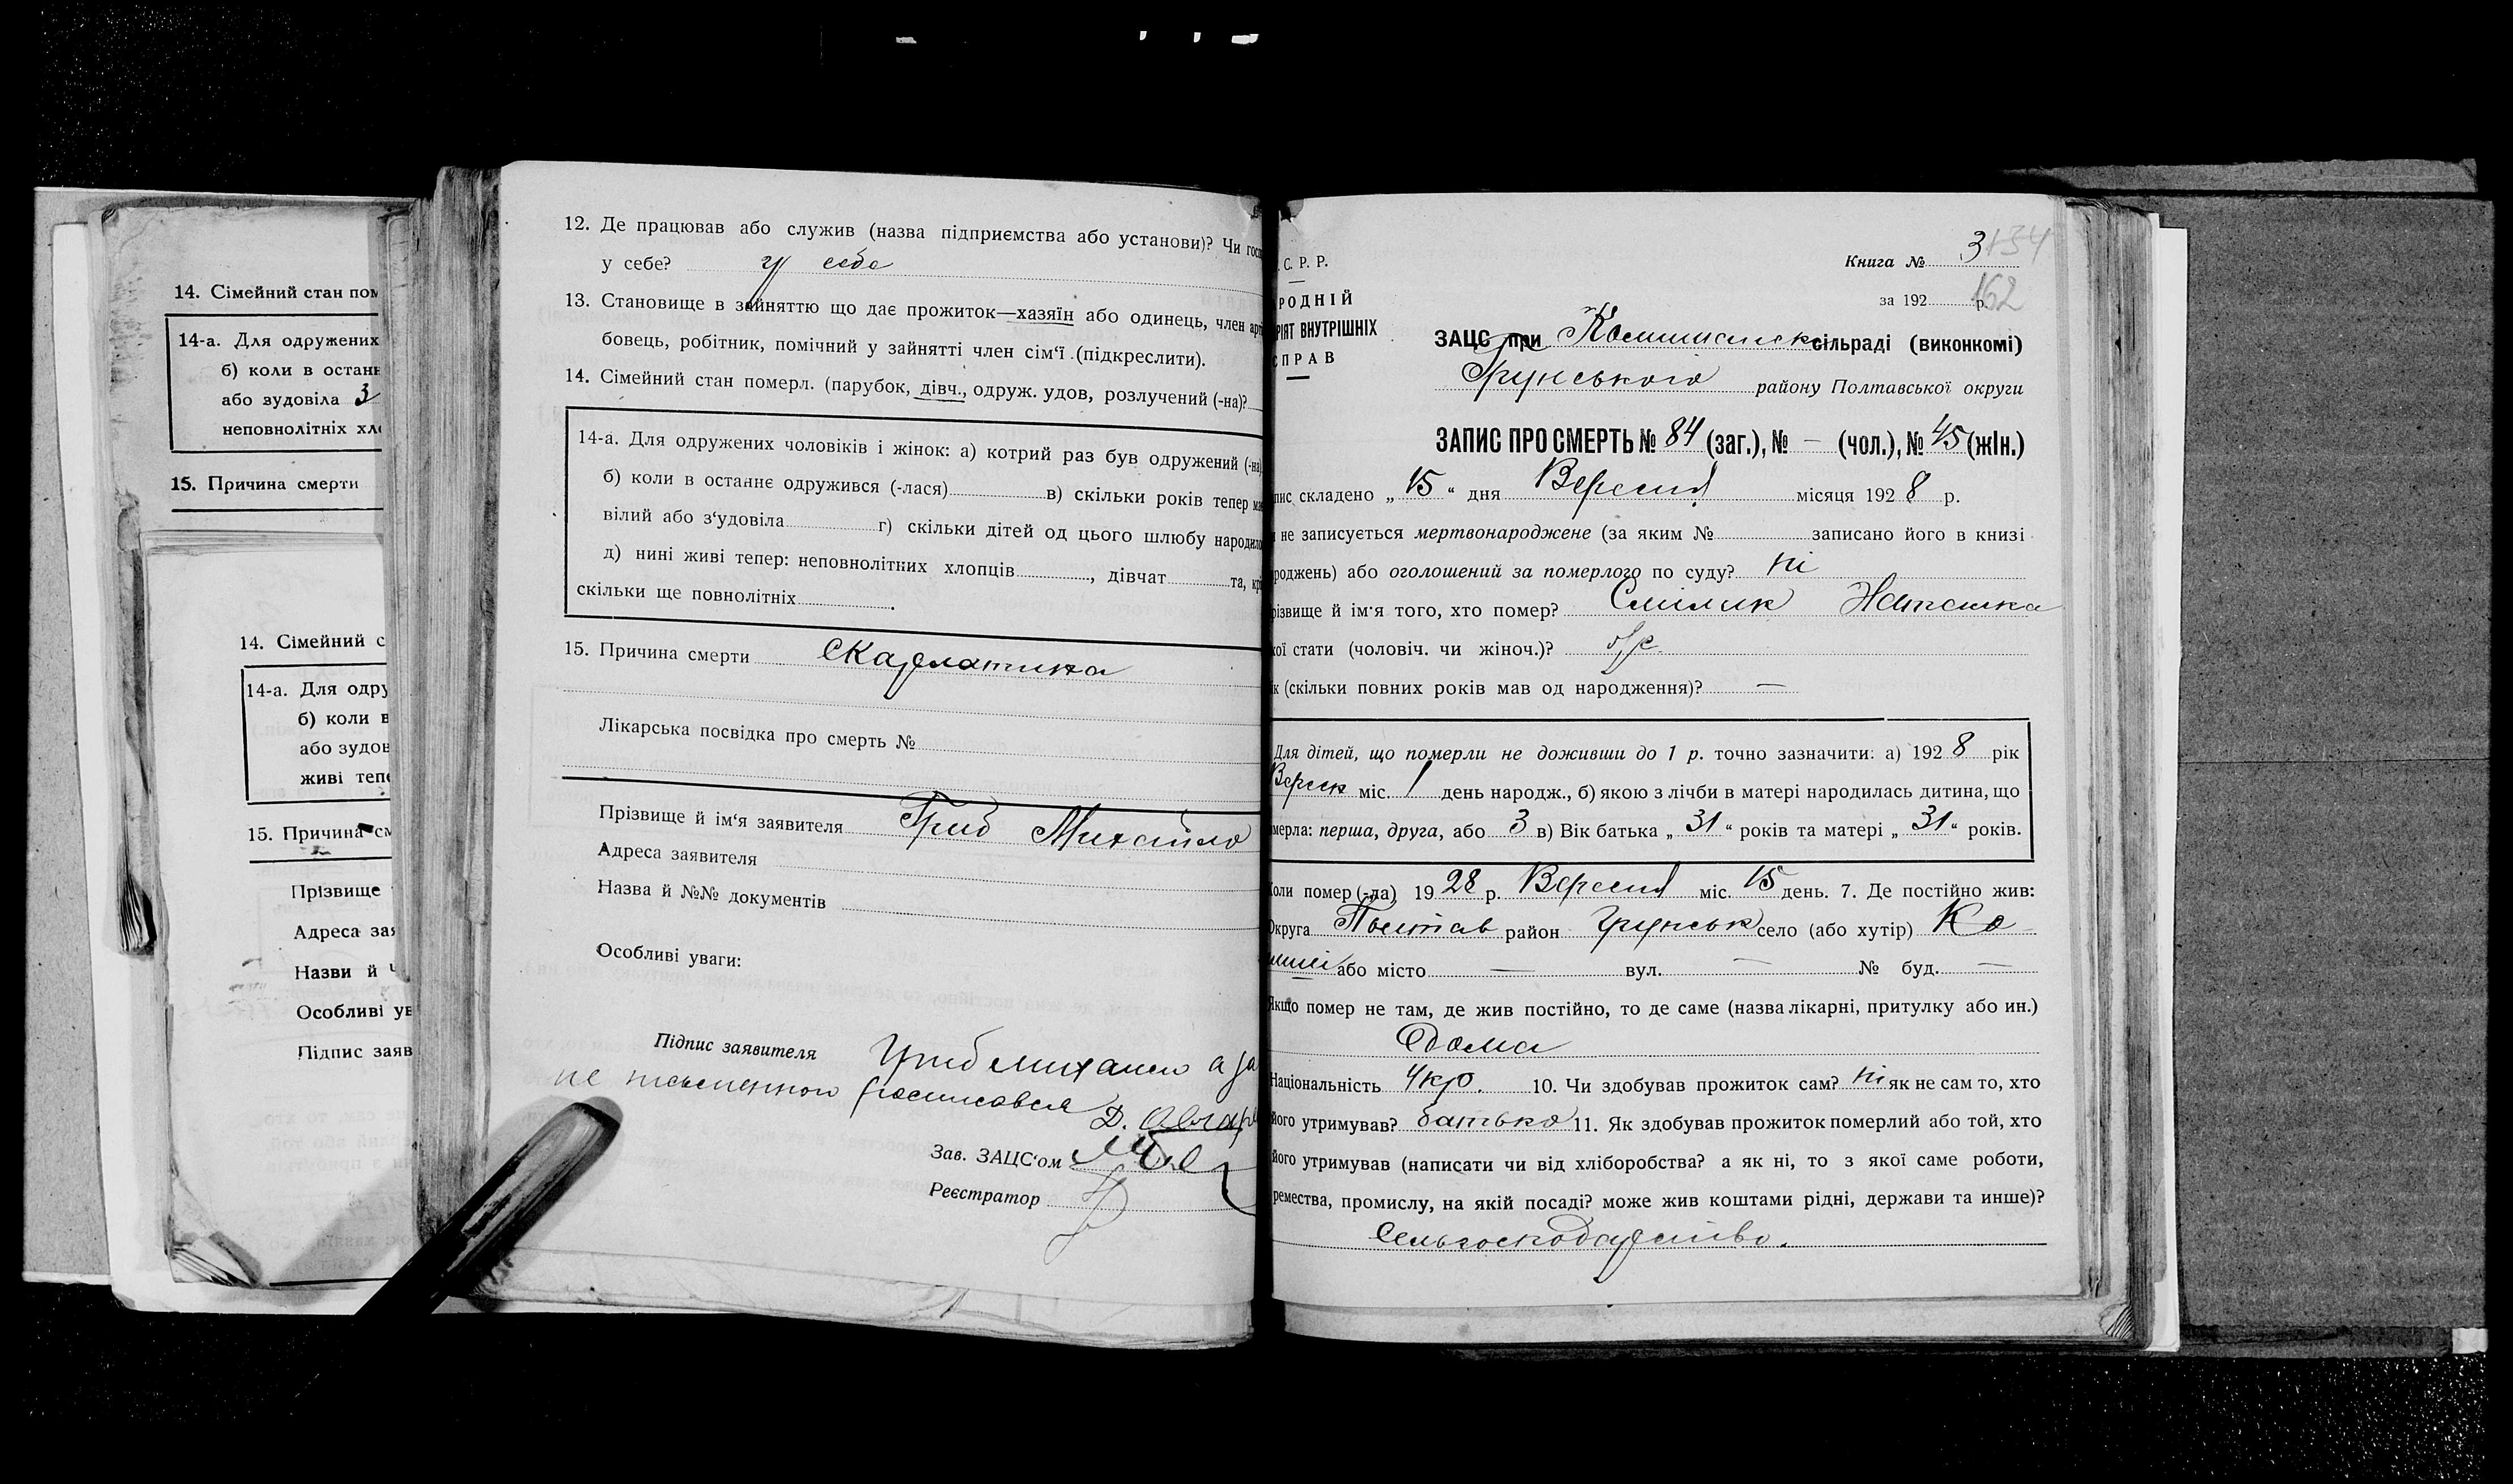 14. Сімейний стан пом
14-а. Для одружених
б) коли в останн
або зудовіла 3
неповнолітніх хло
15. Причина смерти
14. Сімейний с
14-а. Для одру
б) коли в
або зудов
живі тепе
15. Причина см
Прізвище
Адреса зая
Назви й
Особливі ув
Підпис заяв
12. Де працював або служив (назва підприємства або установи)? Чи госп
у себе? у себе
13. Становище в зайняттю що дає прожиток—хазяїн або одинець, член арт
бовець, робітник, помічний у зайнятті член сім'ї (підкреслити).
14. Сімейний стан померл. (парубок, дівч., одруж. удов, розлучений (-на)?
14-а. Для одружених чоловіків і жінок: а) котрий раз був одружений (-на)
б) коли в останнє одружився (-лася) в) скільки років тепер має
вілий або з'удовіла г) скільки дітей од цього шлюбу народило
д) нині живі тепер: неповнолітних хлопців , дівчат та, крі
скільки ще повнолітніх .
15. Причина смерти Скарлатина
Лікарська посвідка про смерть №
Прізвище й ім'я заявителя Гриб Михайло
Адреса заявителя
Назва й №№ документів
Особливі уваги:
Підпис заявителя Гриб Михайло а за
не письменного росписався
Д. Овчар
Зав. ЗАЦС'ом
Реєстратор
.С. Р. Р.
РОДНІЙ
РІЯТ ВНУТРІШНІХ
СПРАВ
Книга № 3 134
за 192 р. 162
ЗАЦС при Комишанск сільраді (виконкомі)
Грунського району Полтавської округи
ЗАПИС ПРО СМЕРТЬ № 84 (заг.), № — (чол.), № 45 (жін.)
пис складено „ 15 “ дня Вересня місяця 192 8 р.
и не записується мертвонароджене (за яким № записано його в книзі
роджень) або оголошений за померлого по суду? ні
різвище й ім'я того, хто помер? Смілик Наташка
кої стати (чоловіч. чи жіноч.)? ж
ік (скільки повних років мав од народження)? —
Для дітей, що померли не доживши до 1 р. точно зазначити: а) 192 8 рік
Вересн міс. 1 день народж., б) якою з лічби в матері народилась дитина, що
мерла: перша, друга, або 3 в) Вік батька „ 31 “ років та матері „ 31 “ років.
Коли помер (-ла) 19 28 р. Вересня міс. 15 день. 7. Де постійно жив:
Округа Полтав район Грунськ село (або хутір) Ко
миші або місто — вул. — № буд. —
Якщо помер не там, де жив постійно, то де саме (назва лікарні, притулку або ин.)
Дома
Національність Укр. 10. Чи здобував прожиток сам? ні як не сам то, хто
його утримував? батько 11. Як здобував прожиток померлий або той, хто
його утримував (написати чи від хліборобства? а як ні, то з якої саме роботи,
ремества, промислу, на якій посаді? може жив коштами рідні, держави та инше)?
Сельгосподарство.